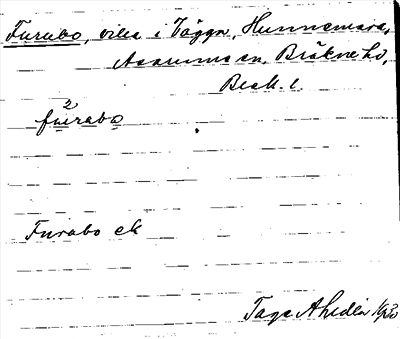 Furubo, villa i Väggn, Hunnemara,
Asarums sn, Bräkne hd,
Blek. l.
2
furabo
Furubo ek
Tage Ahldén 1930